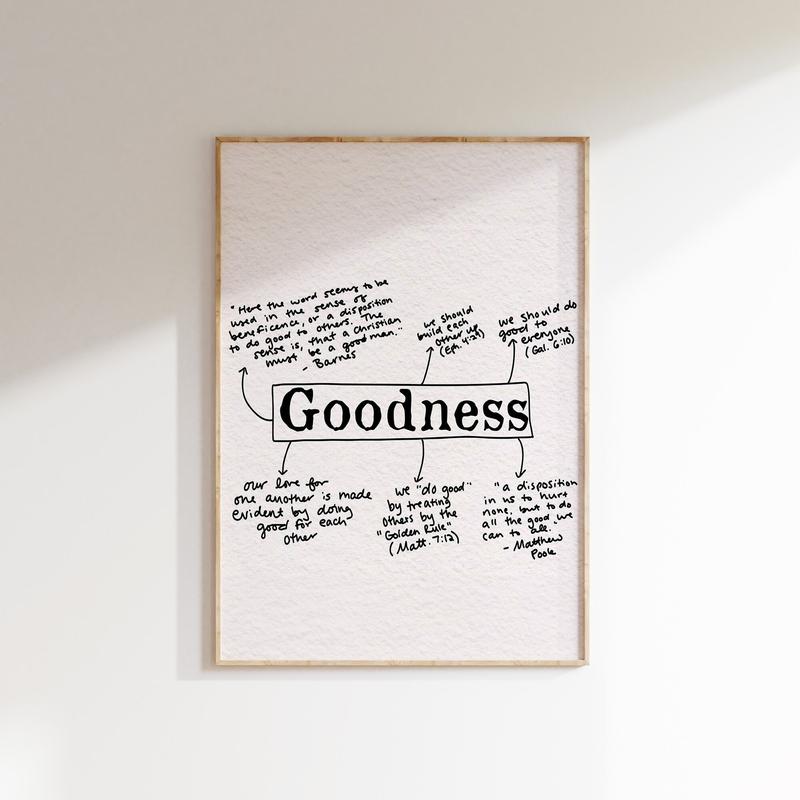 "Here the word seems to be
used in the sense of
beneficence, or a disposition
to do good to others. The
sense is, that a Christian
must be a good man."
- Barnes
we should
build each
other up
(Eph. 4:29)
we should do
good to
everyone
(Gal. 6:10)
Goodness
our love for
one another is made
evident by doing
good for each
other
we "do good"
by treating
others by the
"Golden Rule"
(Matt. 7:12)
"a disposition
in us to hurt
none, but to do
all the good we
can to all."
- Matthew
Poole